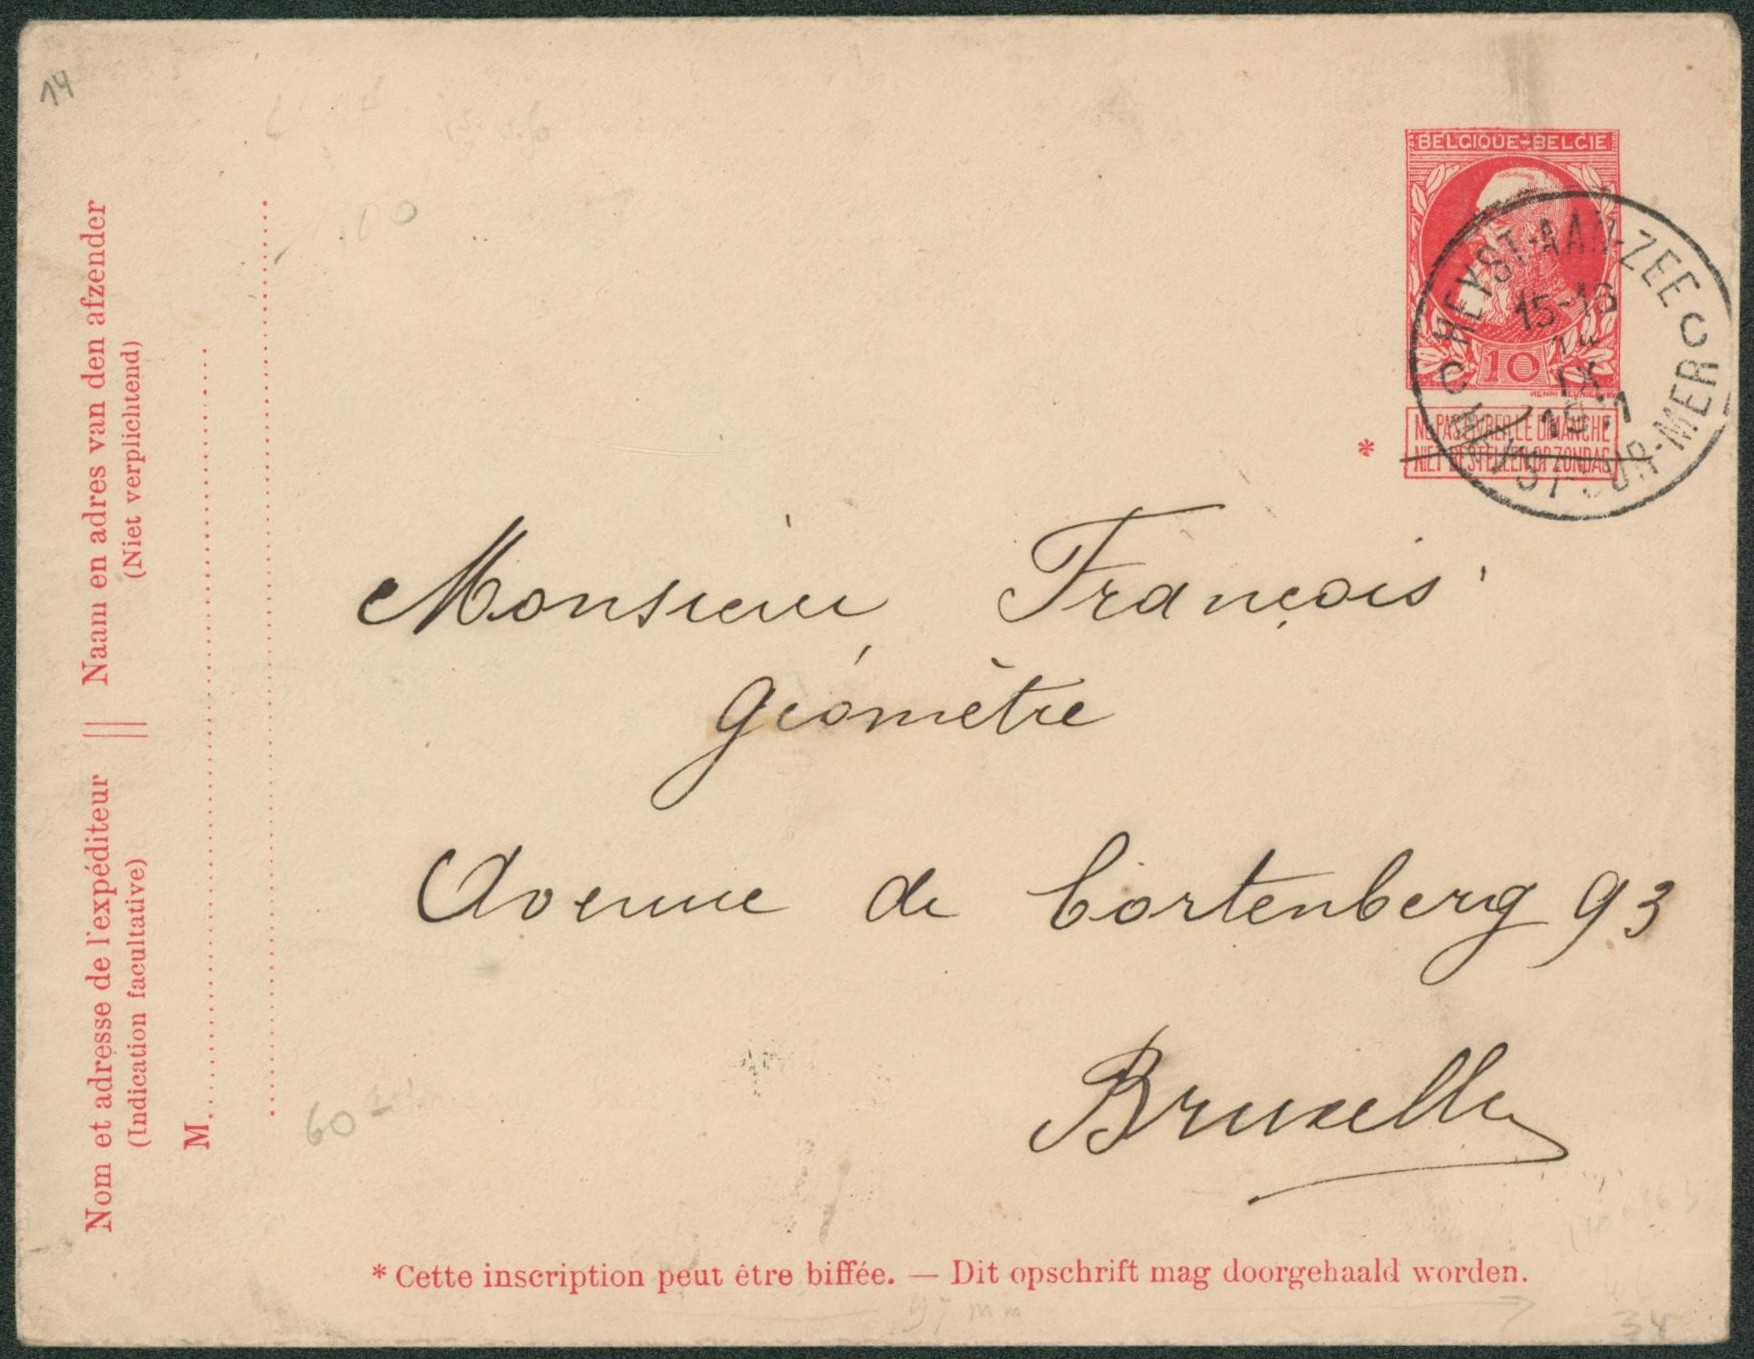 14
BELGIQUE-BELGIE
10
HEYST-AAN-ZEE
15-16
IX
HEYST-SUR-MER
C C
NE PAS LIVRER LE DIMANCHE
NIET BESTELLEN OP ZONDAG
*
Monsieur François
Géomètre
Avenue de Cortenberg 93
Bruxelles
Naam en adres van den afzender
(Niet verplichtend)
Nom et adresse de l'expéditeur
(Indication facultative)
M
60
* Cette inscription peut être biffée. — Dit opschrift mag doorgehaald worden.
97 mm
34